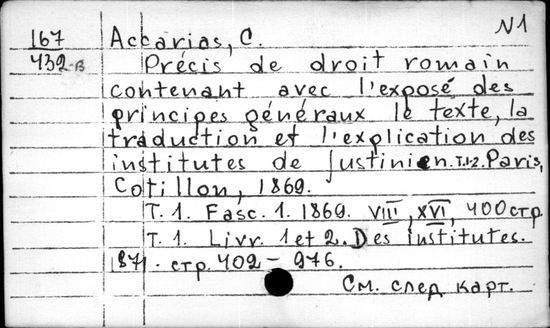 N1
167 Accarias, C.
432-B Précis de droit romain
contenant avec l'exposé des
principes généraux le texte, la
traduction et l'explication des
institutes de Justinien. T.1-2. Paris,
Cotillon, 1869.
T. 1. Fasc. 1. 1869. VIII, XVI, 400 стр
T. 1. Livr. 1 et 2. Des institutes.
1871. стр. 402 - 976.
См. след карт.